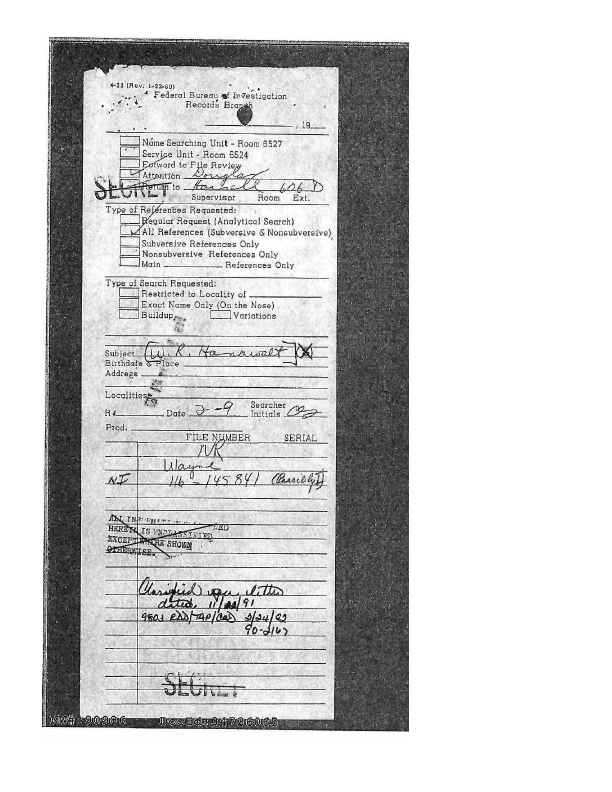 4-22 (Rev. 1-22-60)
Federal Bureau of Investigation
Records Branch
, 19
Name Searching Unit - Room 6527
Service Unit - Room 6524
Forward to File Review
Attention
Return to 606
SECRET
Supervisor Room Ext.
Type of References Requested:
Regular Request (Analytical Search)
All References (Subversive & Nonsubversive)
Subversive References Only
Nonsubversive References Only
Main References Only
Type of Search Requested:
Restricted to Locality of
Exact Name Only (On the Nose)
Buildup Variations
Subject W. R. Hanawalt
Birthdate & Place
Address
Localities
R# Date 2-9 Searcher Initials
Prod.
FILE NUMBER SERIAL
NR
Wayne
NI 116-145841 (Possibly I)
ALL INFORMATION
HEREIN IS UNCLASSIFIED
EXCEPT WHERE SHOWN
OTHERWISE.
Classified per letter
dated 11/ /91
9803 RDD/TAP/ 2/24/92
90-2167
SECRET